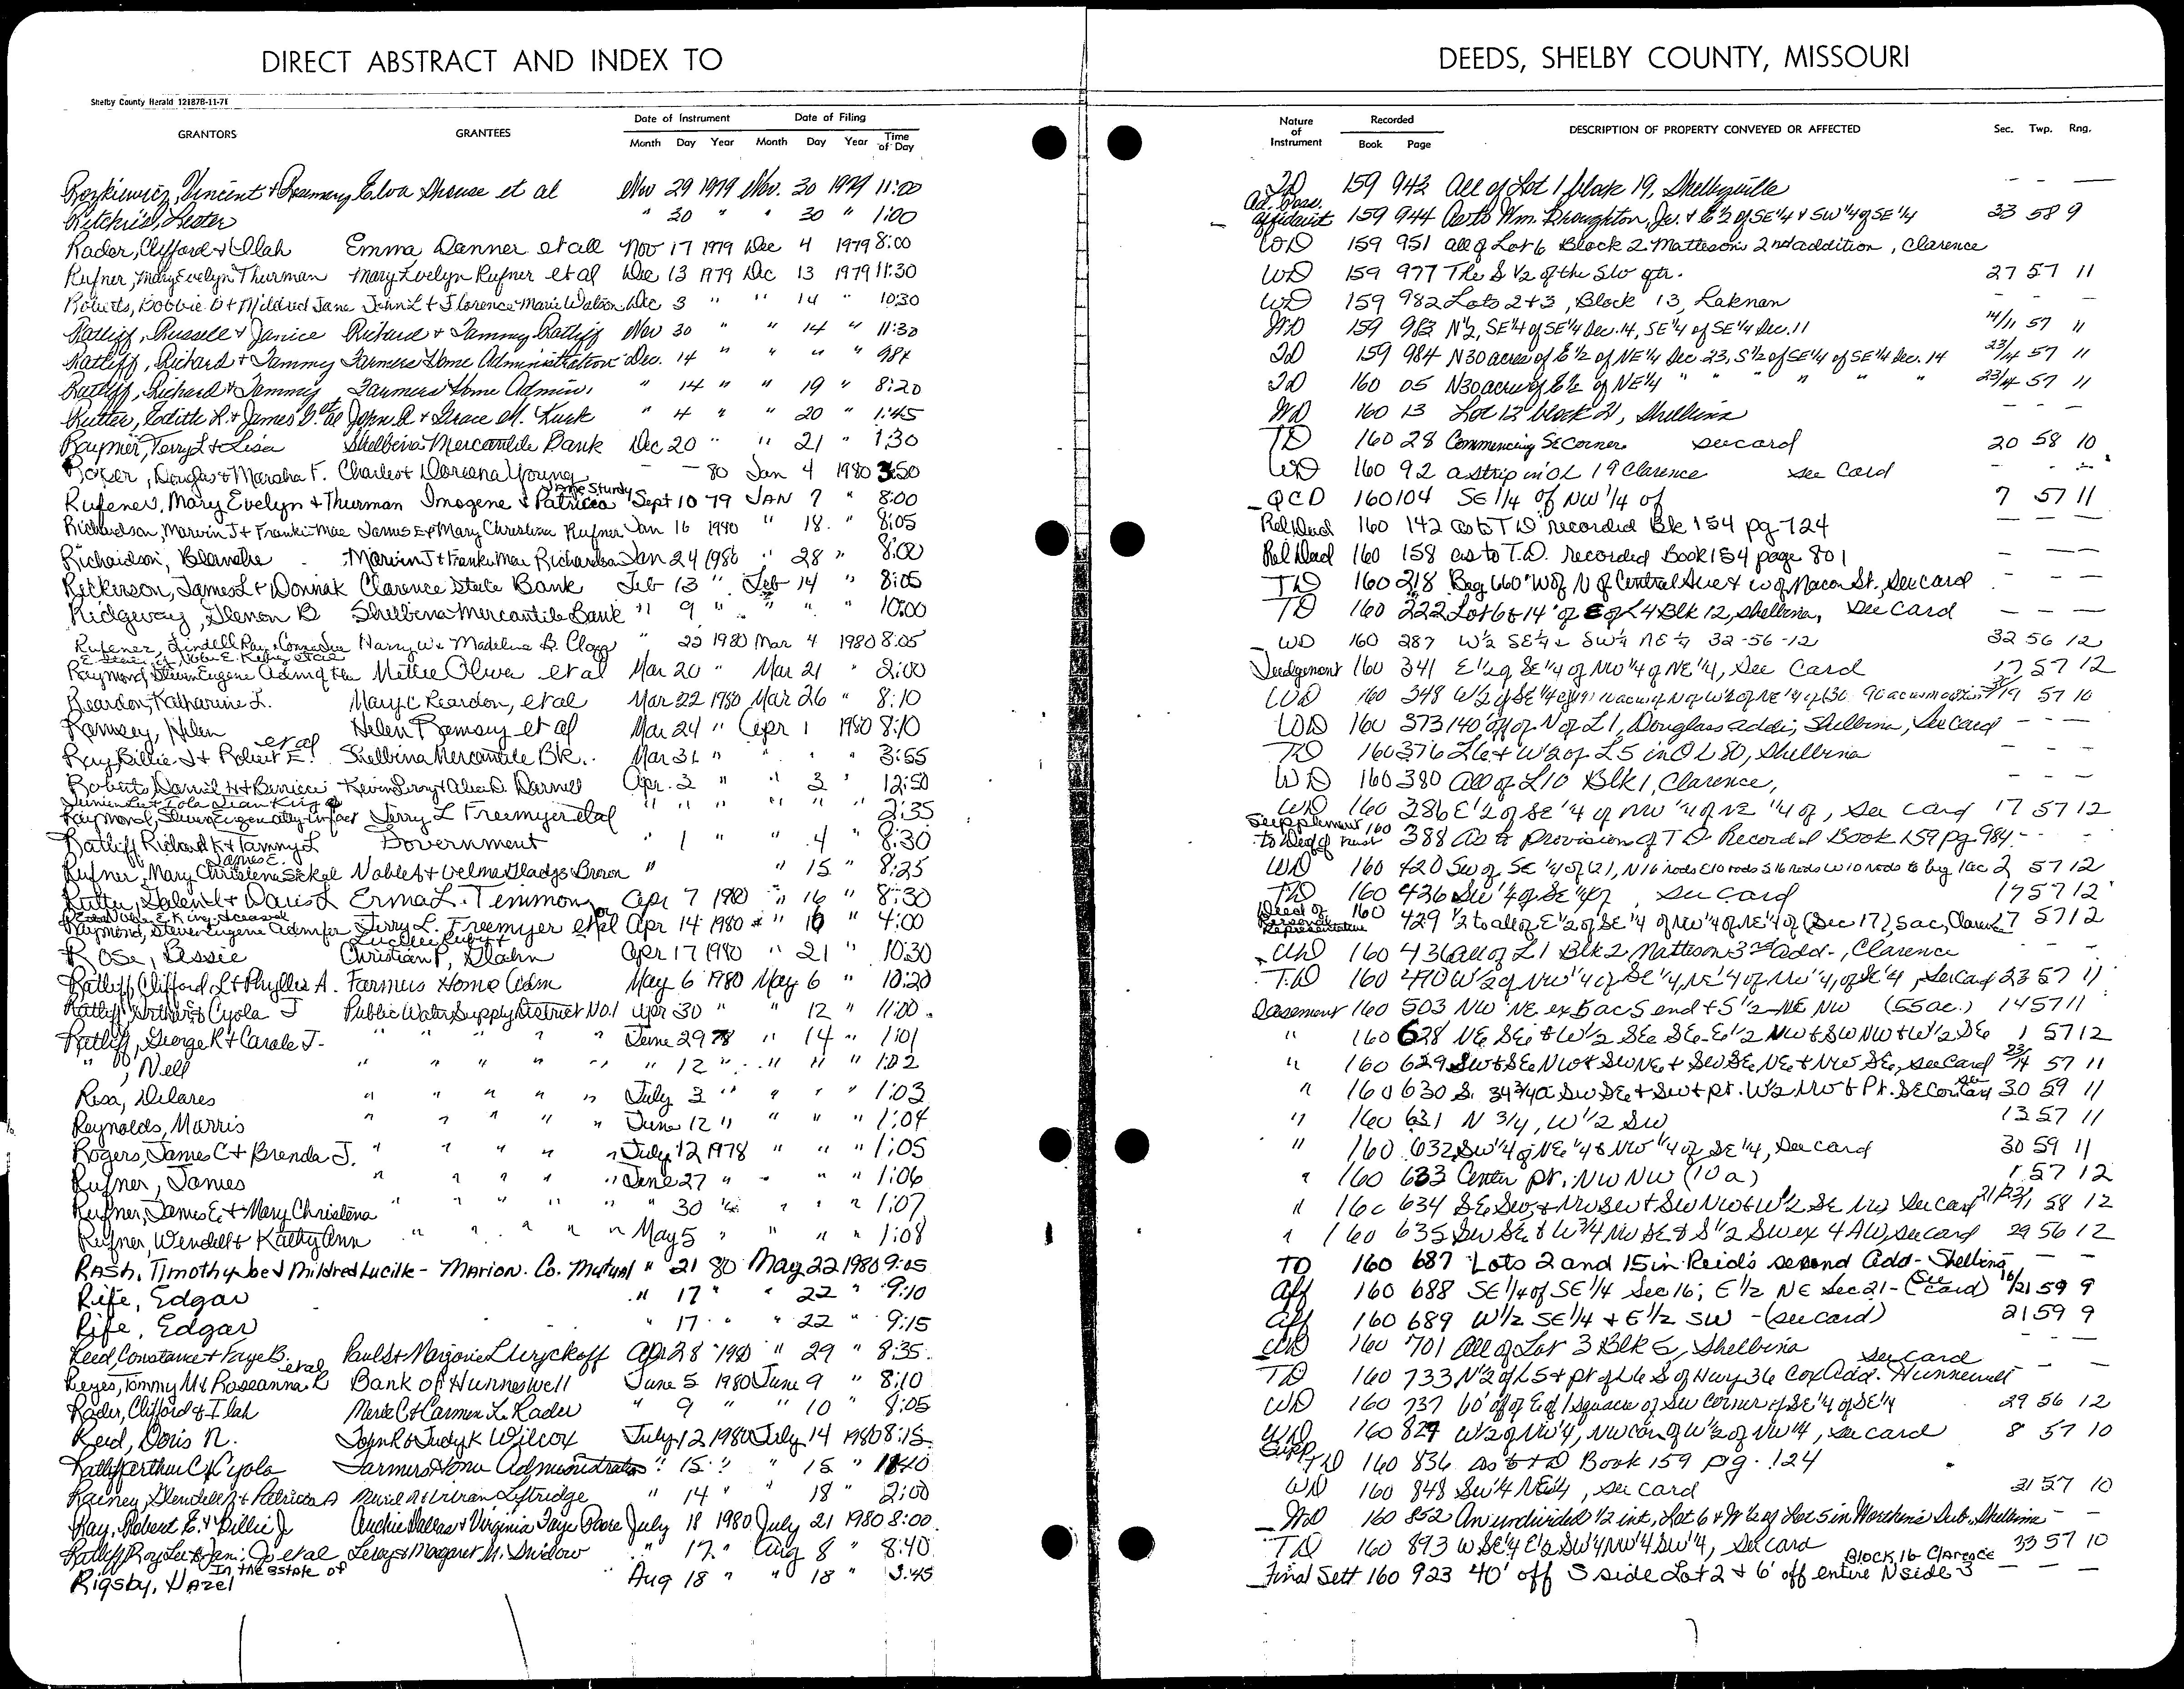 DIRECT ABSTRACT AND INDEX TO
DEEDS, SHELBY COUNTY, MISSOURI
Shelby County Herald 12187B-11-71
GRANTORS GRANTEES Date of Instrument Date of Filing
Month Day Year Month Day Year Time of Day
Nature of Instrument Recorded Book Page DESCRIPTION OF PROPERTY CONVEYED OR AFFECTED Sec. Twp. Rng.
Rozkiewicz, Vincent + Rosemary Elva Shouse et al Nov 29 1979 Nov. 30 1979 11:00 TD 159 942 All of Lot 1 block 19, Shelbyville – – —
Ritchie, Lester " 30 " " 30 " 1:00 Ad. Poss. affidavit 159 944 As to Wm. Broughton, Jr. + E½ of SE¼ + SW¼ of SE¼ 33 58 9
Rador, Clifford + Ilah Emma Danner et all Nov 17 1979 Dec 4 1979 8:00 WD 159 951 all of Lot 6 Block 2 Matteson's 2nd addition, Clarence
Rufner, Mary Evelyn Thurman Mary Evelyn Rufner et al Dec 13 1979 Dec 13 1979 11:30 WD 159 977 The S ½ of the SW qtr. 27 57 11
Roberts, Bobbie D + Mildred Jane John L + Florence Marie Watson Dec 3 " " 14 " 10:30 WD 159 982 Lots 2+3, Block 13, Lakenan – – –
Ratliff, Russell + Janice Richard + Tammy Ratliff Nov 30 " " 14 " 11:30 WD 159 983 N½, SE¼ of SE¼ Sec. 14, SE¼ of SE¼ Sec. 11 14/11 57 11
Ratliff, Richard + Tammy Farmers Home Administration Dec. 14 " " " " 984 TD 159 984 N30 acres of E½ of NE¼ Sec. 23, S½ of SE¼ of SE¼ Sec. 14 23/14 57 11
Ratliff, Richard + Tammy Farmers Home Admin. " 14 " " 19 " 8:20 TD 160 05 N30 acres of E½ of NE¼ " " " " " 23/14 57 11
Rutter, Edith R. + James D. et al John R + Grace M. Kirk " 4 " " 20 " 1:45 WD 160 13 Lot 12 block 21, Shelbina – – –
Raymer, Terry L + Lisa Shelbina Mercantile Bank Dec 20 " " 21 " 1:30 TD 160 28 Commencing SE Corner see card 20 58 10
Roker, Douglas + Marsha F. Charles + Doreena Young – – 80 Jan 4 1980 3:50 WD 160 92 a strip in OL 19 Clarence see Card – – –
Rufener, Mary Evelyn + Thurman Imogene + Patricia Jane Sturdy Sept 10 79 JAN 7 " 8:00 QCD 160 104 SE 1/4 of NW 1/4 of 7 57 11
Richardson, Marvin J + Frankie Mae James E + Mary Christina Rufner Jan 16 1980 " 18. " 8:05 Rel Deed 160 142 as to T D recorded Bk 154 pg 724 — — —
Richardson, Blanche Marvin J + Frankie Mae Richardson Jan 24 1980 " 28 " 8:00 Rel Deed 160 158 as to T.D. recorded Book 154 page 801 – — —
Rickerson, James L + Donna K Clarence State Bank Feb 13 " Feb 14 " 8:05 TD 160 218 Beg 660' W of N of Central Ave + W of Macon St., See card – — —
Ridgeway, Glenon B Shelbina Mercantile Bank " 9 " " " " 10:00 TD 160 222 Lot 6 + 14' of E of L4 Blk 12, Shelbina, See Card — — —
Rufener, Lindell Ray + Connie Sue Harry W + Madeline B. Clagg " 22 1980 Mar 4 1980 8:05 WD 160 287 W½ SE¼ + SW¼ NE ¼ 32-56-12 32 56 12
Raymond, Steven Eugene Adm of the Mettie Oliver et al Mar 20 " Mar 21 " 2:00 Judgement 160 341 E½ of SE¼ of NW¼ of NE¼, See Card 17 57 12
Reardon, Katharine L. Mary C Reardon, et al Mar 22 1980 Mar 26 " 8:10 WD 160 348 57 10
Ramsey, Helen Helen Ramsey et al Mar 24 " Apr 1 1980 8:10 WD 160 373 140' off of N of L1, Douglass addi, Shelbina, See card – – –
Ray, Billie J + Robert E. et al Shelbina Mercantile Bk. Mar 31 " " " " 3:55 TD 160 376 L6 + W½ of L5 in O L 80, Shelbina – – –
Roberts, Daniel H + Bernice Kevin Leroy + Alice D. Darnell Apr. 2 " " 3 " 12:50 WD 160 380 All of L10 Blk 1, Clarence,
Raymond, Steven Eugene atty-in-fact Jerry L Freemyer et al " " " " " " 2:35 WD 160 386 E½ of SE¼ of NW¼ of NE¼ of, see card 17 57 12
Ratliff Richard K + Tammy L Government " 1 " " 4 " 8:30 Supplement to Deed of Trust 160 388 As to provision of T D Recorded Book 159 pg. 984 - -
Rufner, Mary Christena Sickel James E. Noble + Velma Gladys Brown " " 15 " 8:25 WD 160 420 SW of SE ¼ of (2), N16 rods E10 rods S16 rods W10 rods to beg 1ac 2 57 12
Rutter, Galen L + Doris L Erma L. Timmons Apr 7 1980 " 16 " 8:30 TD 160 426 SW ¼ of SE ¼ of, See card 17 57 12
Raymond, Steven Eugene Adm for Jerry L. Freemyer et al Apr 14 1980 " 16 " 4:00 Deed of Personal Representative 160 429 ½ to all of E½ of SE¼ of NW¼ of NE¼ of (Sec 17), 5 ac, Clarence 17 57 12
Rose, Bessie Christian P. Glahn Apr 17 1980 " 21 " 10:30 WD 160 436 all of L1 Blk 2 Matteson 3rd add., Clarence – –
Ratliff, Clifford L + Phyllis A. Farmers Home Adm May 6 1980 May 6 " 10:20 T.D 160 470 W½ of NW¼ of SE¼, NE¼ of NW¼, of SE¼, See Card 23 57 11
Ratliff, Arthur + Cyola J Public Water Supply District No. 1 Apr 30 " " 12 " 11:00 Easement 160 503 NW NE ex 5ac S end + S ½ – NE NW (55ac.) 14 57 11
Ratliff, George R + Carole J. " " " " " June 29 78 " 14 " 1:01 " 160 628 NE SE + W½ SE SE - E½ NW + SW NW + W½ SE 1 57 12
" , Nell " " " " " " 12 " " " " 1:02 " 160 629 SW + SE NW + SW NE + SW SE NE + NW SE, see card 23/14 57 11
Risa, Delares " " " " " July 3 " " " " 1:03 " 160 630 S. 34¾a SW SE + SW + pt. W½ NW + Pt. SE Cor see card 30 59 11
Reynolds, Morris " " " " " June 12 " " " " 1:04 " 160 631 N 3/4, W ½ SW 13 57 11
Rogers, James C + Brenda J. " " " " " July 12 1978 " " " 1:05 " 160 632 SW ¼ of NE ¼ + NW ¼ of SE ¼, See card 30 59 11
Rufner, James " " " " " June 27 " " " " 1:06 " 160 633 Center pt. NW NW (10 a) 1 57 12
Rufner, James E. + Mary Christena " " " " " " 30 " " " " 1:07 " 160 634 SE SW + NW SW + SW NW + W½ SE NW See card 58 12
Rufner, Wendell + Kathy Ann " " " " " May 5 " " " " 1:08 " 160 635 SW SE + W ¾ NW SE + S ½ SW ex 4 A W, see card 29 56 12
RASH, Timothy Joe + Mildred Lucille - Marion. Co. Mutual " 21 80 May 22 1980 9:05 TD 160 687 Lots 2 and 15 in Reid's second Add - Shelbina — —
Rife, Edgar " 17 " " 22 " 9:10 Aff 160 688 SE 1/4 of SE 1/4 Sec 16; E ½ NE Sec 21 - (See card) 16/21 59 9
Rife, Edgar " 17 " " 22 " 9:15 Aff 160 689 W½ SE ¼ + E ½ SW - (see card) 21 59 9
Reed, Constance + Faye B. et al Paul S + Marjorie L Wyckoff Apr 28 1980 " 29 " 8:35 WD 160 701 All of Lot 3 Blk 5, Shelbina – – —
Reyes, Tommy M + Roseanna R Bank of Hunnewell June 5 1980 June 9 " 8:10 TD 160 733 N½ of L5 + pt of L6 S of Hwy 36 Cox Add. Hunnewell see card – —
Rader, Clifford + Ilah Merle C + Carmen L. Rader " 9 " " 10 " 8:05 WD 160 737 60' off of E of 1 square of SW corner of SE¼ of SE¼ 29 56 12
Reid, Doris N. John R + Judy K Wilcox July 12 1980 July 14 1980 8:15 WD 160 827 W½ of NW¼, NW cor. of W½ of NW¼, see card 8 57 10
Ratliff Arthur C + Cyola Farmers Home Administration " 15 " " 15 " 11:40 Supp TD 160 836 as to TD Book 159 pg. 124
Rainey, Glendell R + Patricia A " 14 " " 18 " 2:00 WD 160 848 SW¼ NE¼, see card 31 57 10
Ray, Robert E. + Billie J Archie Dallas + Virginia Faye Poore July 18 1980 July 21 1980 8:00 WD 160 852 An undivided ½ int, Lot 6 + W½ of Lot 5 in Worthen's Sub, Shelbina – –
Ratliff Roy Lee + et al Leroy + Margaret M. Snidow " 17 " Aug 8 " 8:40 TD 160 893 W SE¼ E½ SW¼ NW¼ SW¼, see card 33 57 10
Rigsby, Hazel In the estate of Aug 18 " " 18 " 3:45 Final Sett 160 923 40' off S side Lot 2 + 6' off entire N side 3 Block 16 Clarence — — —